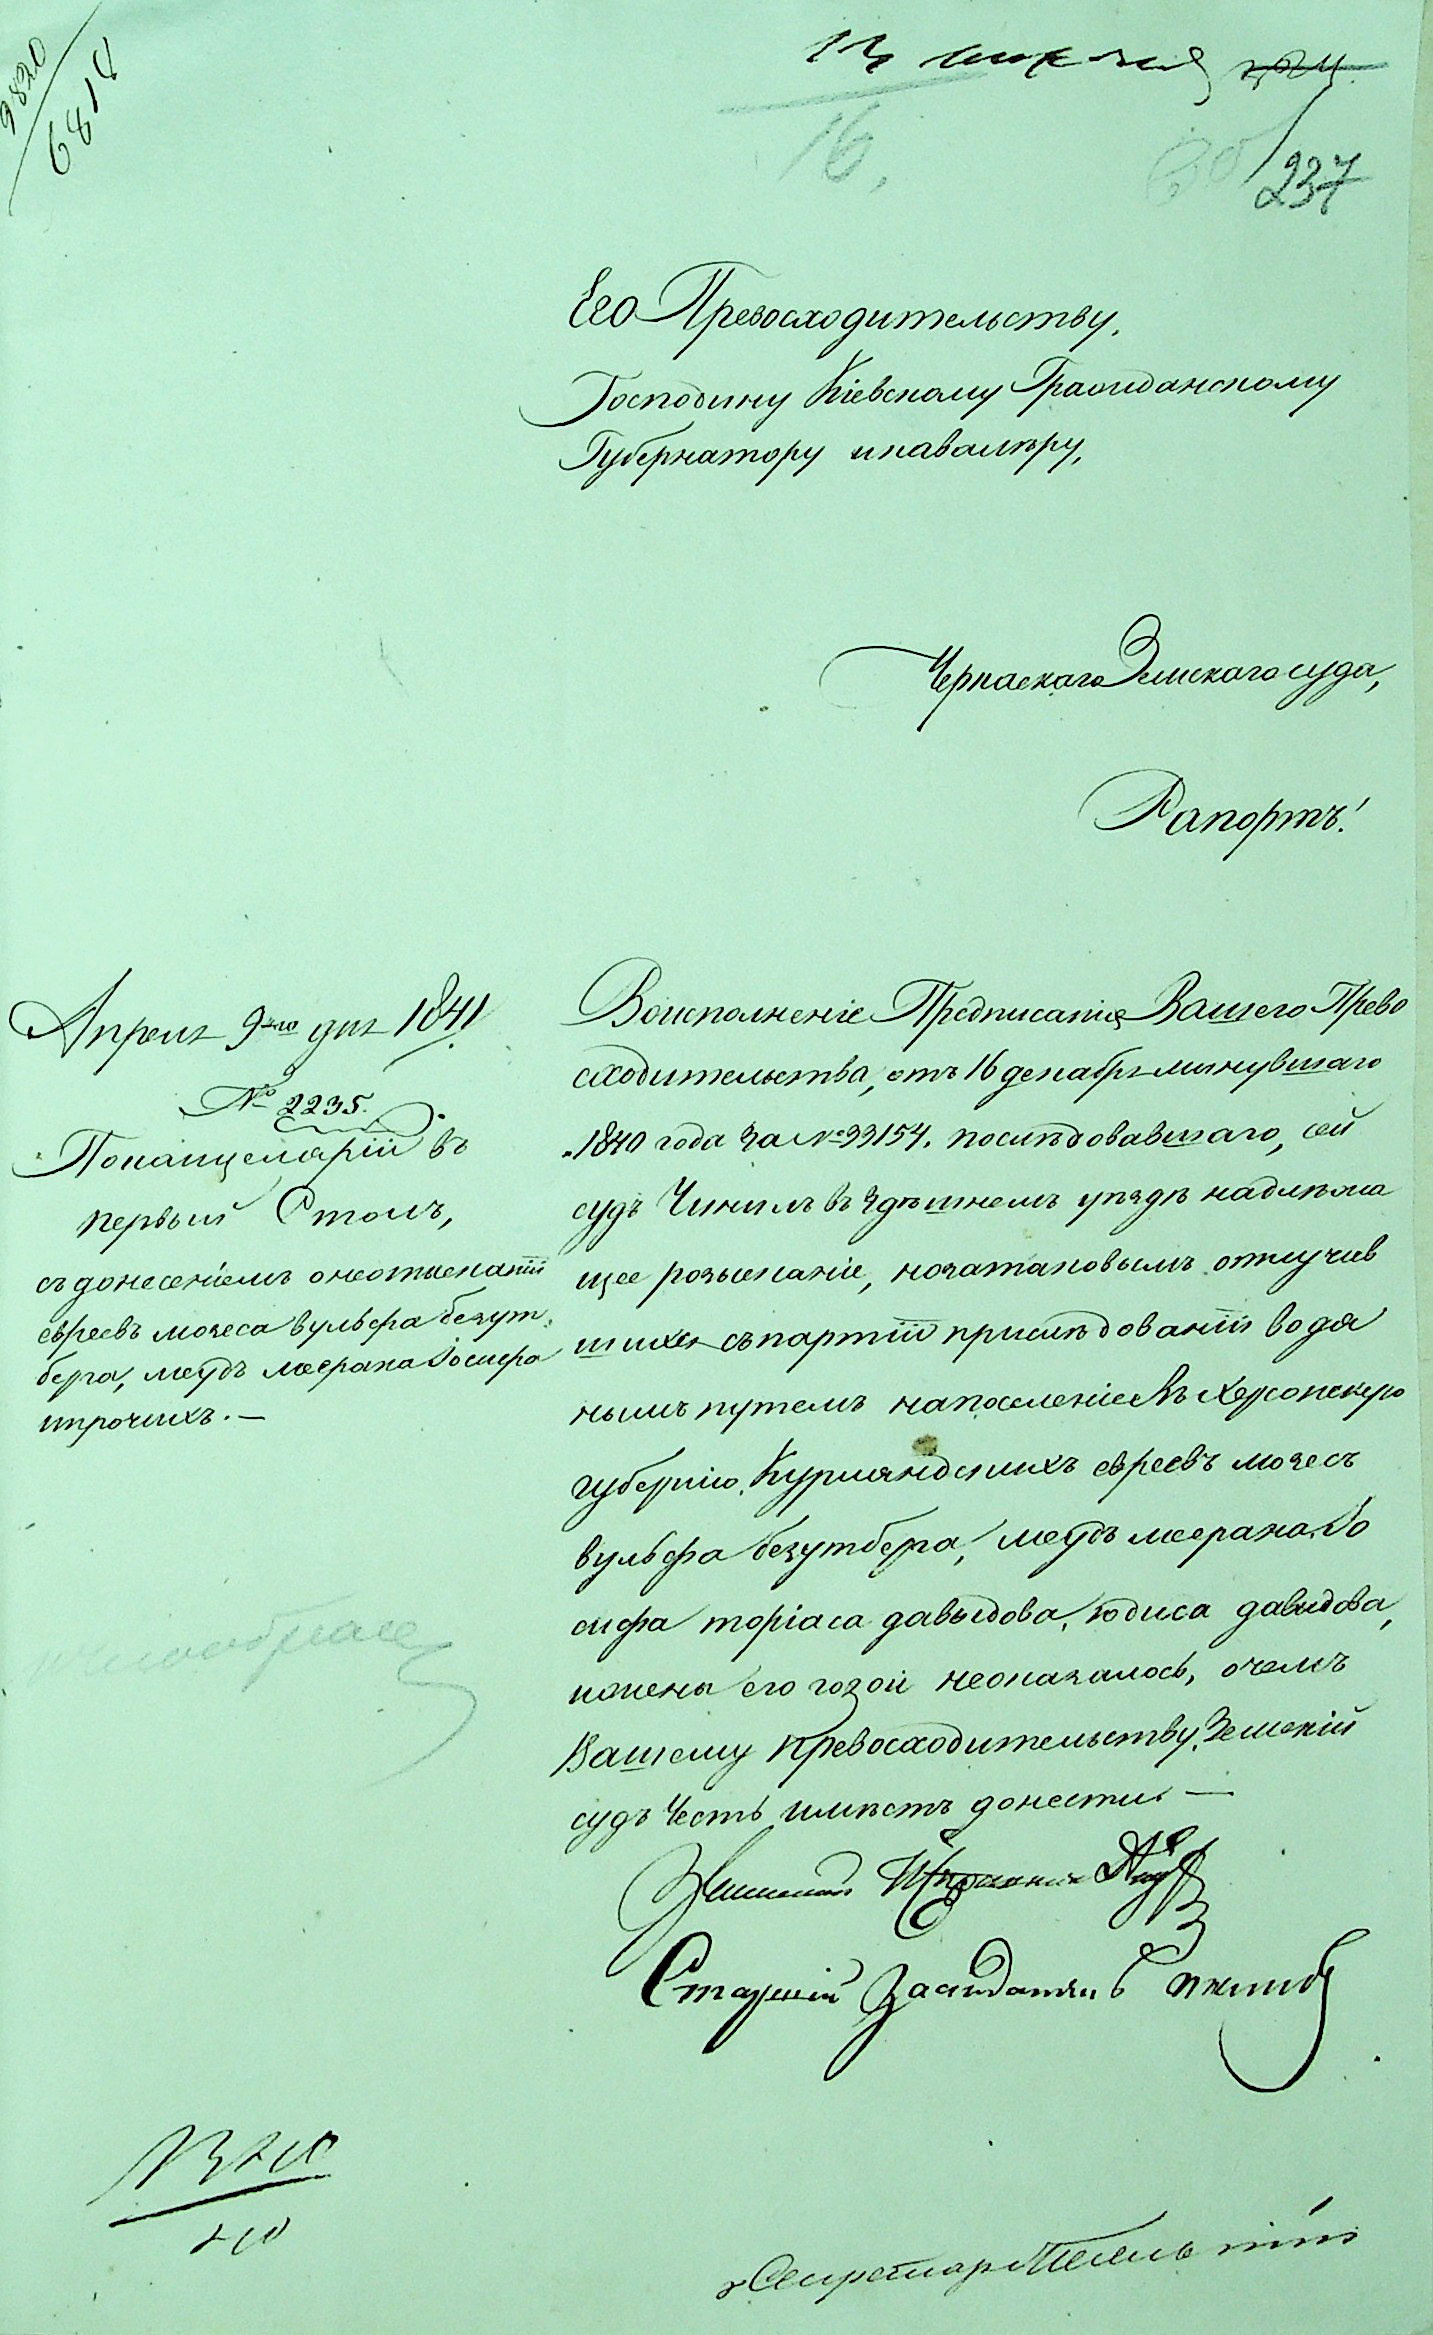 9820
6818
13 апреля
16.
237
Его Превосходительству,
Господину Кіевскому Гражданскому
Губернатору и кавалеру,
Черкаскаго Земскаго суда,
Рапортъ!
Апреля 9го дня 1841
№ 2235.
По канцеляріи въ
первый Столъ,
съ донесеніемъ о неотысканіи
евреевъ мозеса вульфа безут,
берга, меудъ меерана Іосифа
и прочихъ. —
Воисполненіе Предписанія Вашего Прево
сходительства, отъ 16 декабря минувшаго
1840 года за № 33154. последовавшаго, сей
судъ Чинилъ въ здешнемъ уезде надлежа
щее розысканіе, но затаковымъ отлучив
шихся съ партіи при следованіи водя
нымъ путемъ на поселеніе въ Херсонскую
губернію, Курляндскихъ евреевъ мозесъ
вульфа безутберга, меудъ меерана, Іо
сифа торіаса давыдова, юдиса давидова,
и жены его гозой не оказалось, о чемъ
Вашему Превосходительству, Земскій
судъ Честь имеетъ донести —
Земский Исправник
Старший Заседатель
Секретарь